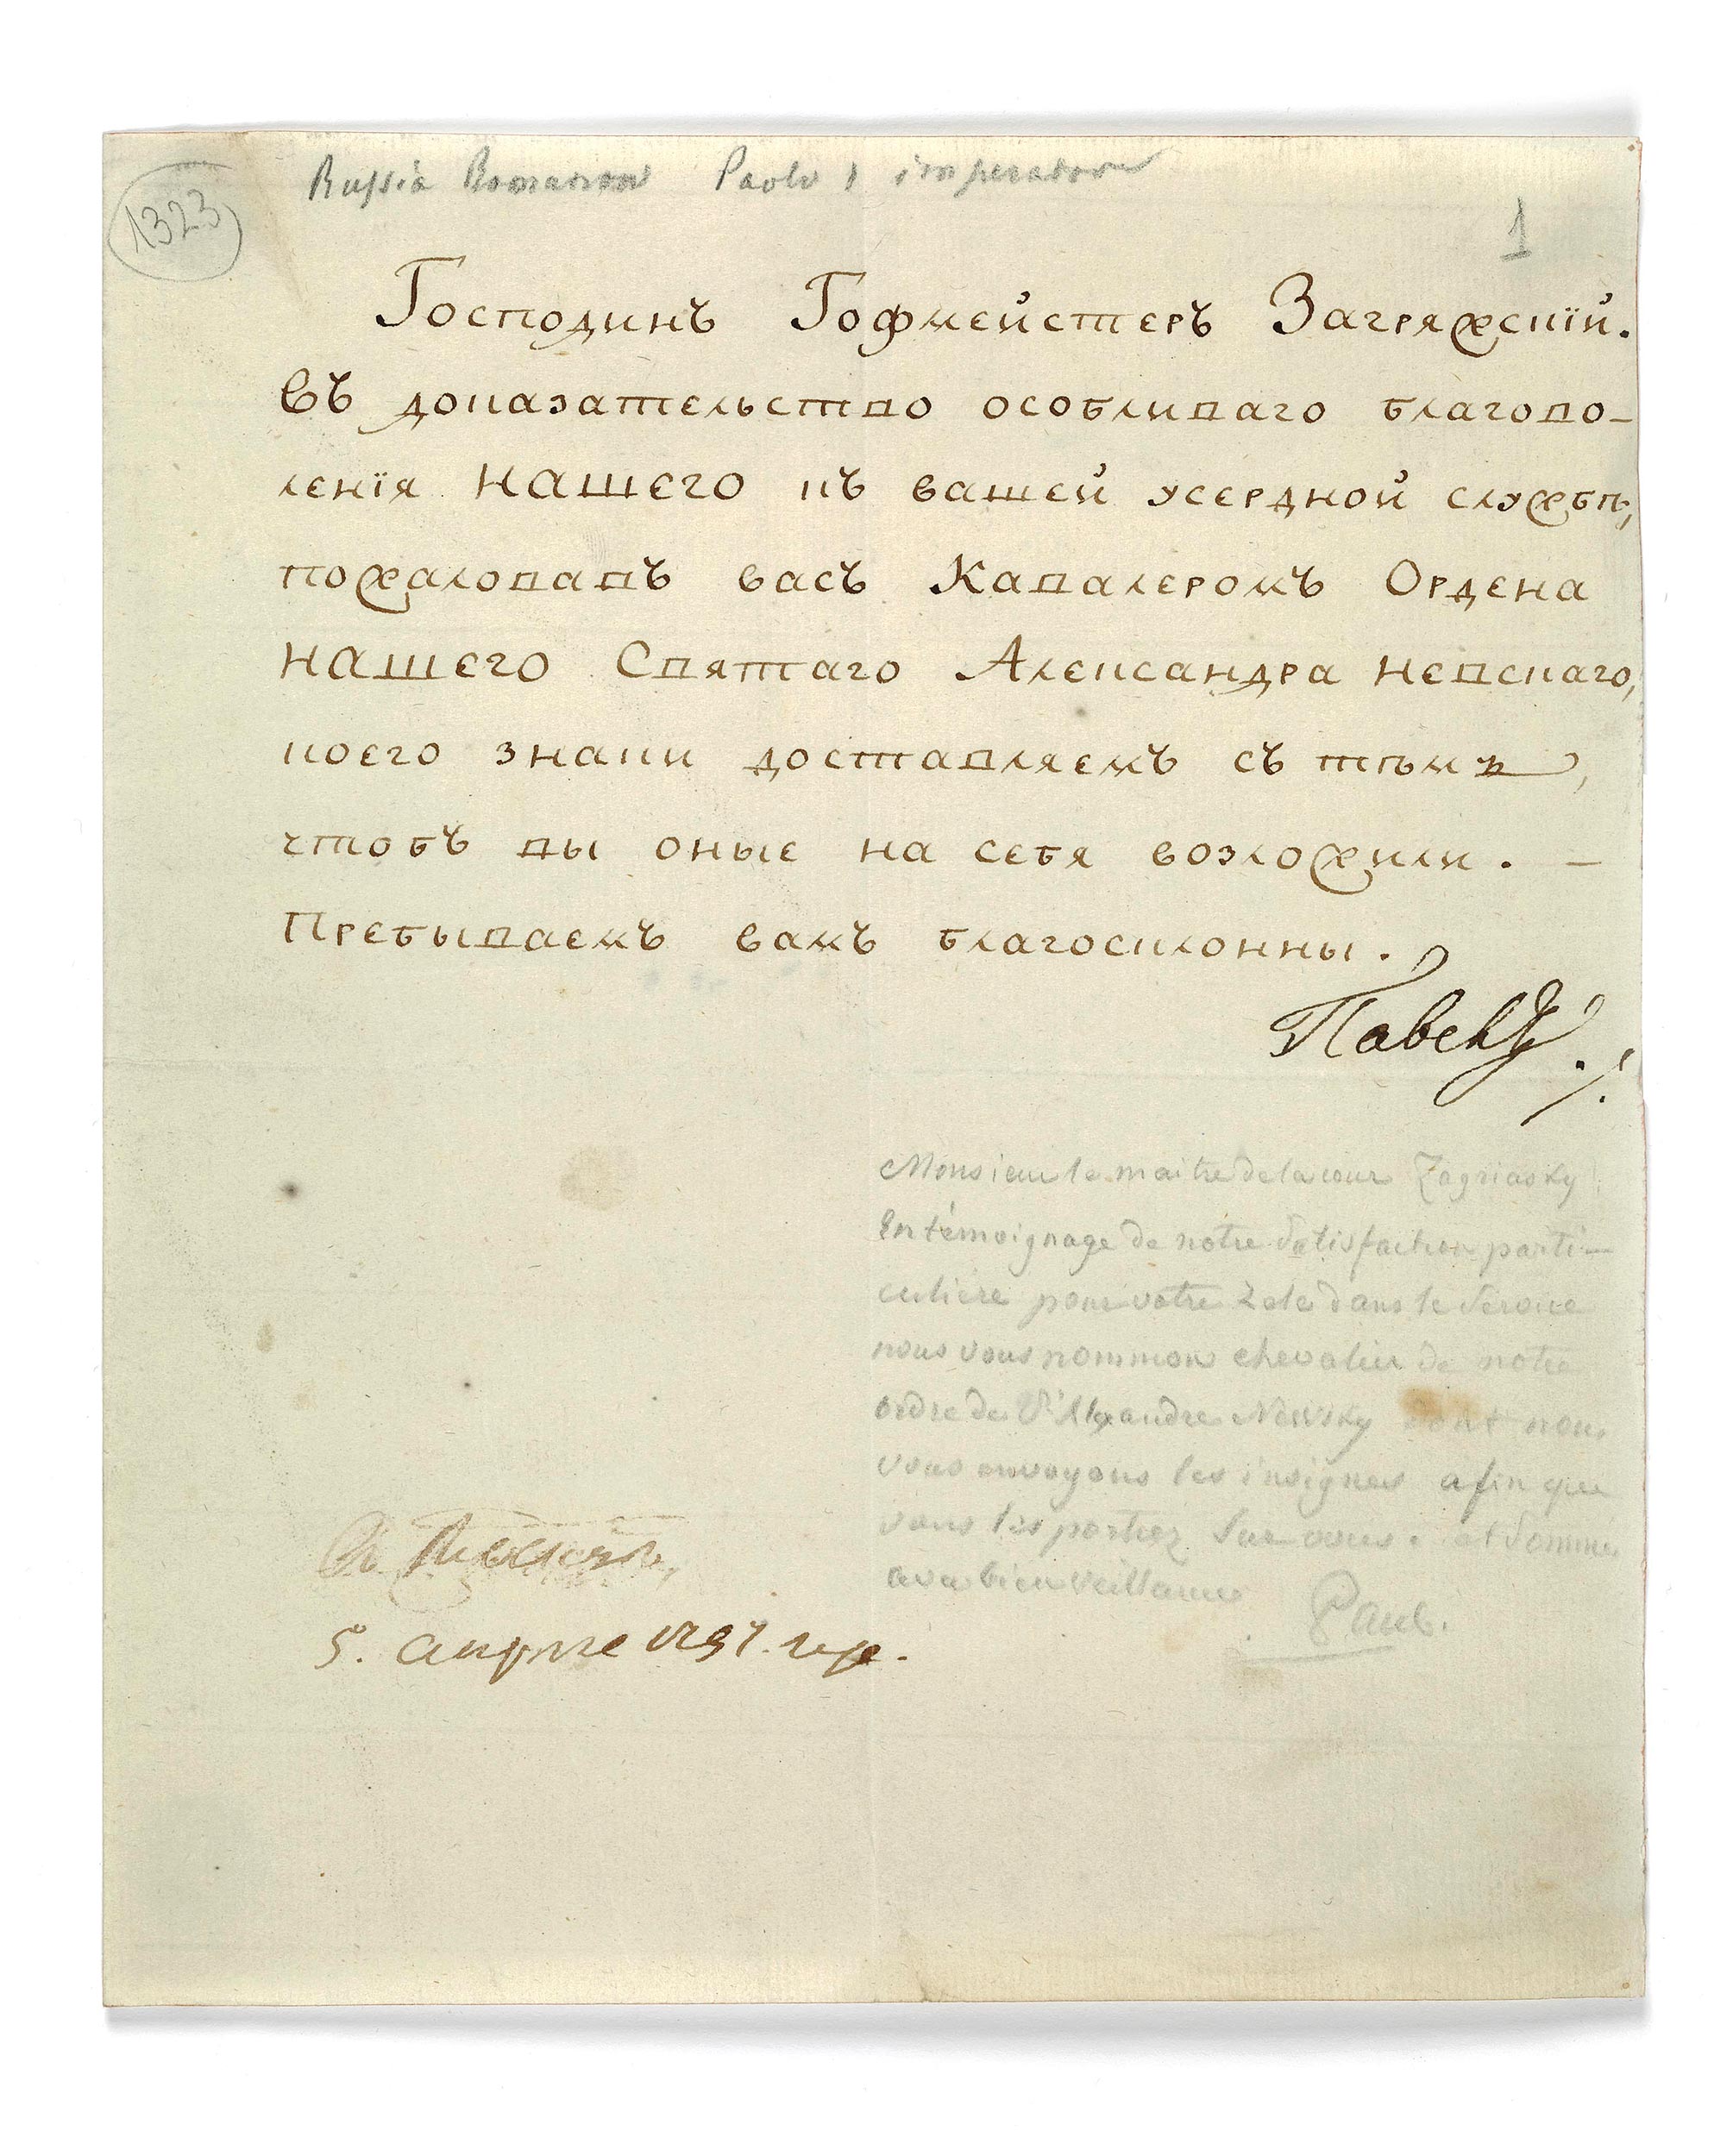 1323
Russia Romanow Paolo I imperatore
1
Господинъ Гофмейстеръ Загряжскїй.
Въ доказательство особливаго благово-
ленїя нашего къ вашей усердной службѣ,
пожаловавъ васъ Кавалеромъ Ордена
нашего Святаго Александра Невскаго,
коего знаки доставляемъ съ тѣмъ,
чтобъ вы оные на себя возложили. —
Пребываемъ вамъ благосклонны.
Павелъ
Monsieur le maitre de la cour Zagriasky
En témoignage de notre satisfaction parti-
culière pour votre zele dans le service
nous vous nommons chevalier de notre
ordre de St Alexandre Newsky dont nous
vous envoyons les insignes afin que
vous les portiez sur vous. et sommes
avec bienveillance
Paul.
Въ Москвѣ,
5. апреля 1797. года.